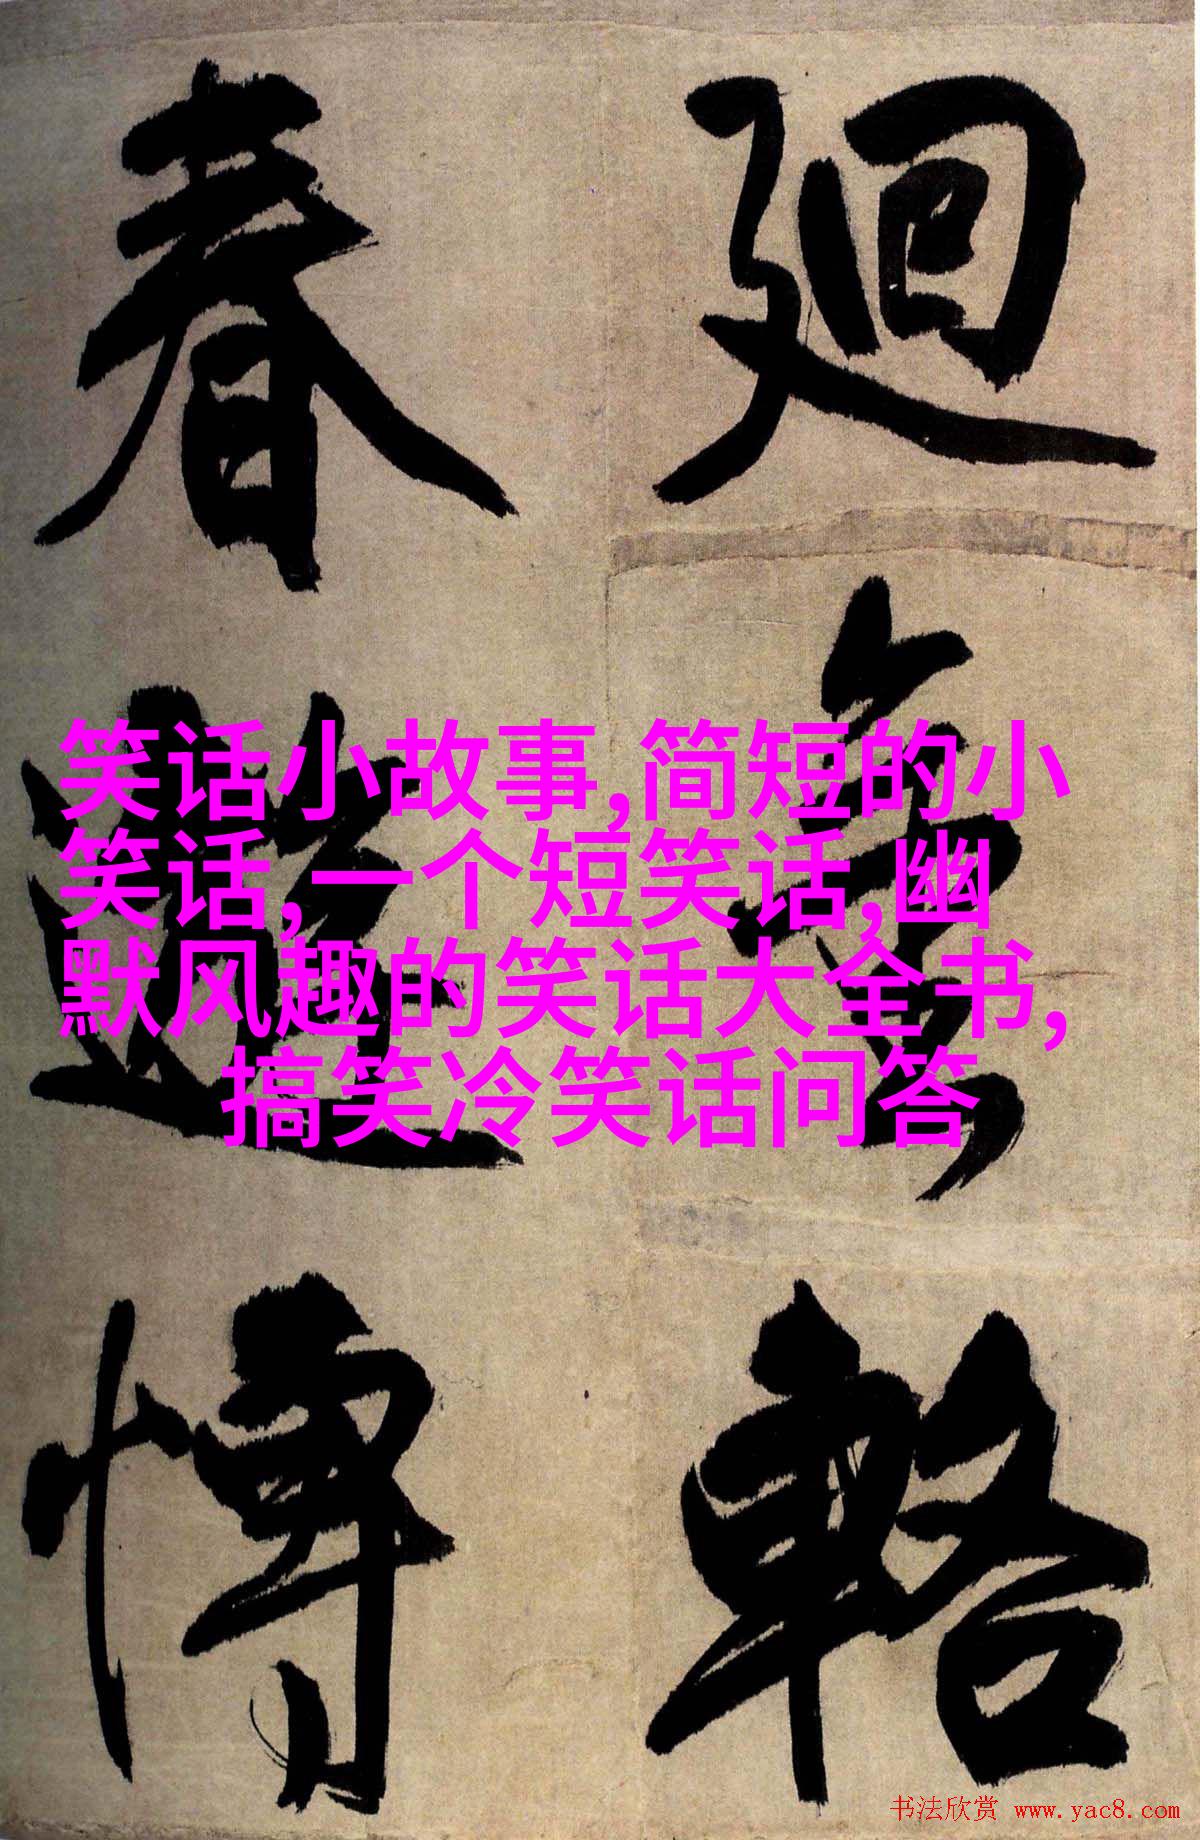 廻
輅
春
愽
笑话小故事,简短的小
笑话,一个短笑话,幽
默风趣的笑话大全书,
搞笑冷笑话问答
书法欣赏 www.yac8.com